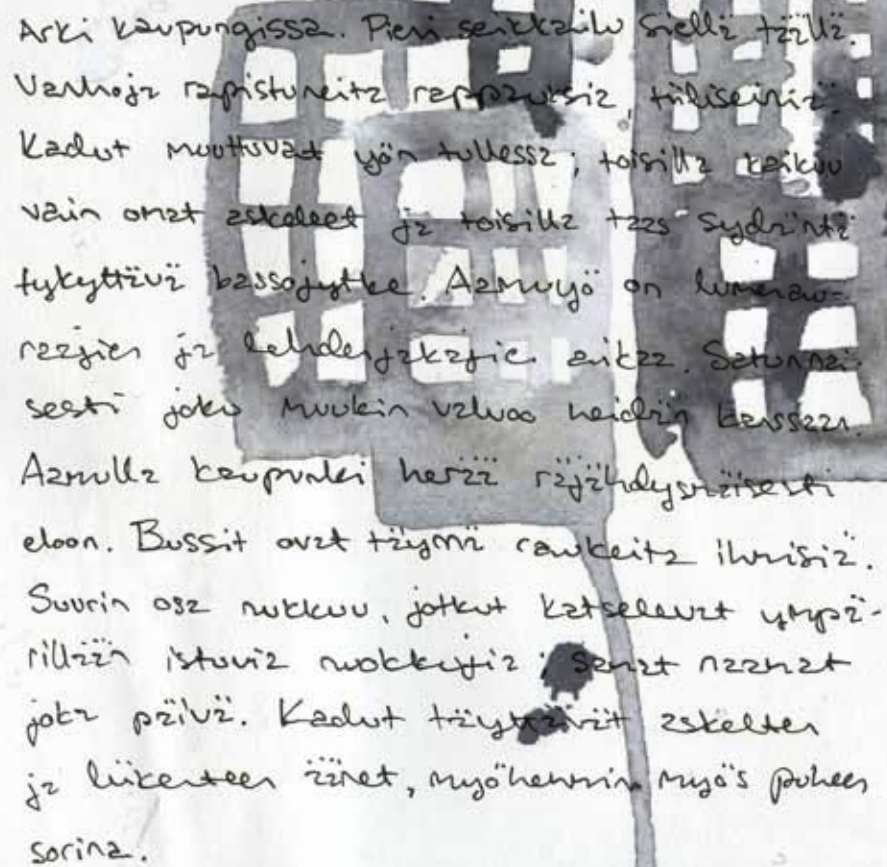 Arki kaupungissa. Pieni seikkailu siellä täällä.
Vanhoja rapistuneita rappauksia, tiiliseiniä.
Kadut muuttuvat yön tullessa; toisilla kaikuu
vain omat askeleet ja toisilla taas sydäntä
tykyttävä bassojytke. Aamuyö on lumenau-
raajien ja lehdenjakajien aikaa. Satunnai-
sesti joku muukin valvoo heidän kanssaan.
Aamulla kaupunki herää räjähdysmäisesti
eloon. Bussit ovat täynnä raukeita ihmisiä.
Suurin osa nukkuu, jotkut katselevat ympä-
rillään istuvia nuokkujia. Samat naamat
joka päivä. Kadut täyttävät askelten
ja liikenteen äänet, myöhemmin myös puheen
sorina.